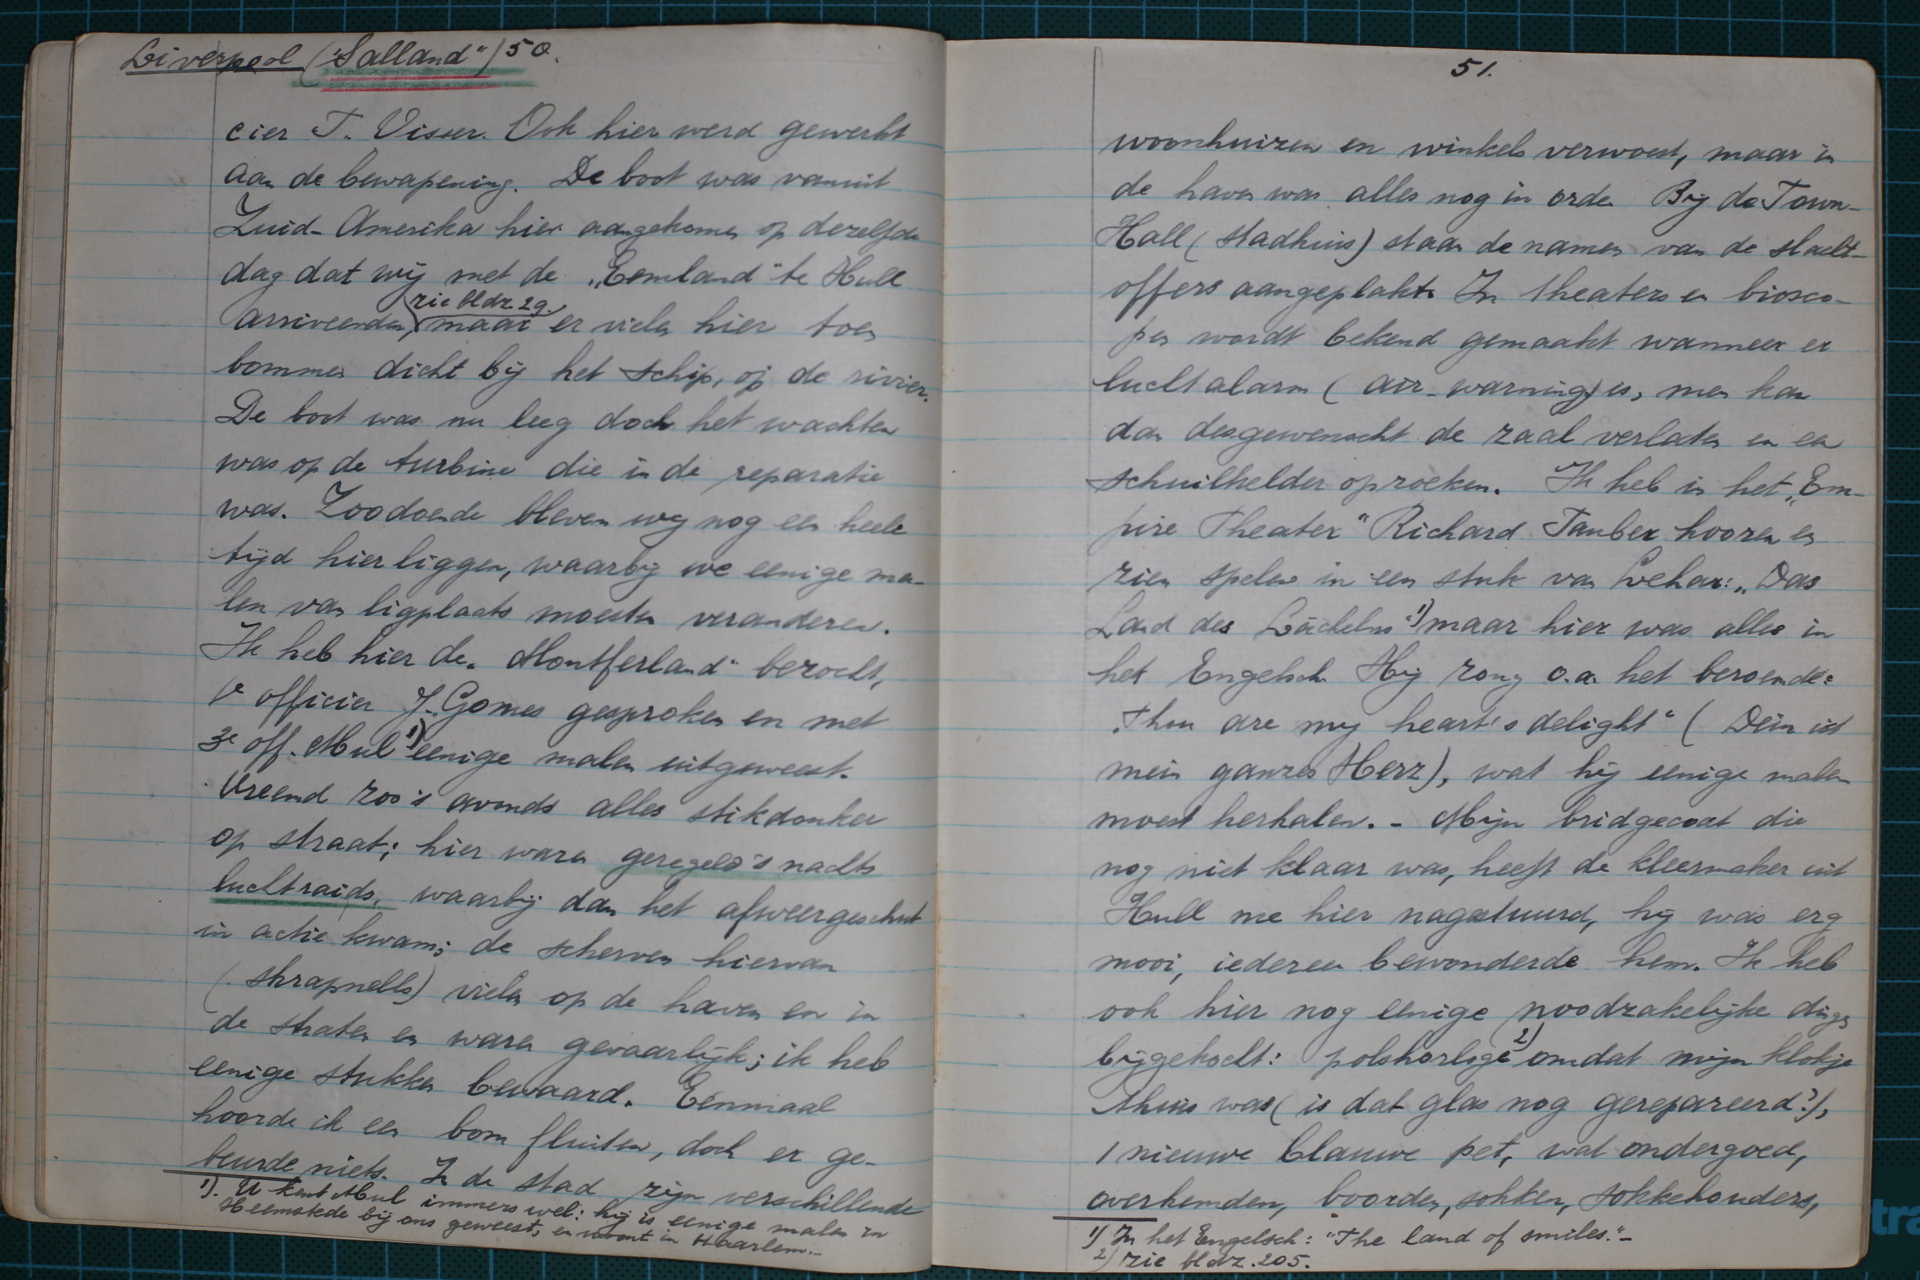 Liverpool ("Salland") 50.
cier T. Visser. Ook hier werd gewerkt
aan de bewapening. De boot was vanuit
Zuid-Amerika hier aangekomen op dezelfde
dag dat wij met de „Eemland" te Hull
zie bldz. 29.
arriveerden, maar er vielen hier toen
bommen dicht bij het schip, op de rivier.
De boot was nu leeg doch het wachten
was op de turbine die in de reparatie
was. Zoodoende bleven wij nog een heele
tijd hier liggen, waarbij we eenige ma-
len van ligplaats moesten veranderen.
Ik heb hier de „Montferland" bezocht,
1e officier J. Gomes gesproken en met
3e off. Mul 1) eenige malen uitgeweest.
Vreemd zoo 's avonds alles stikdonker
op straat; hier waren geregeld 's nachts
luchtraids, waarbij dan het afweergeschut
in actie kwam; de scherven hiervan
(shrapnells) vielen op de haven en in
de straten en waren gevaarlijk; ik heb
eenige stukken bewaard. Eenmaal
hoorde ik een bom fluiten, doch er ge-
beurde niets. In de stad zijn verschillende
1). U kent Mul immers wel: hij is eenige malen in
Heemstede bij ons geweest, en woont in Haarlem.-
51.
woonhuizen en winkels verwoest, maar in
de haven was alles nog in orde. Bij de Town-
Hall (stadhuis) staan de namen van de slacht-
offers aangeplakt. In theaters en biosco-
pen wordt bekend gemaakt wanneer er
luchtalarm (air-warning) is, men kan
dan desgewenscht de zaal verlaten en een
schuilkelder opzoeken. Ik heb in het „Em-
pire Theater" Richard Tauber hooren en
zien spelen in een stuk van Lehar: „Das
Land des Lächelns" 1) maar hier was alles in
het Engelsch. Hij zong o.a. het beroemde:
„Thou are my heart's delight" (Dein ist
mein ganzes Herz), wat hij eenige malen
moest herhalen. - Mijn bridgecoat die
nog niet klaar was, heeft de kleermaker uit
Hull me hier nagestuurd, hij was erg
mooi, iedereen bewonderde hem. Ik heb
ook hier nog eenige noodzakelijke dingen
bijgekocht: polshorloge 2) omdat mijn klokje
thuis was (is dat glas nog gerepareerd?),
1 nieuwe blauwe pet, wat ondergoed,
overhemden, boorden, sokken, sokkehouders,
1) In het Engelsch: "The land of smiles."-
2) zie bldz. 205.
tra